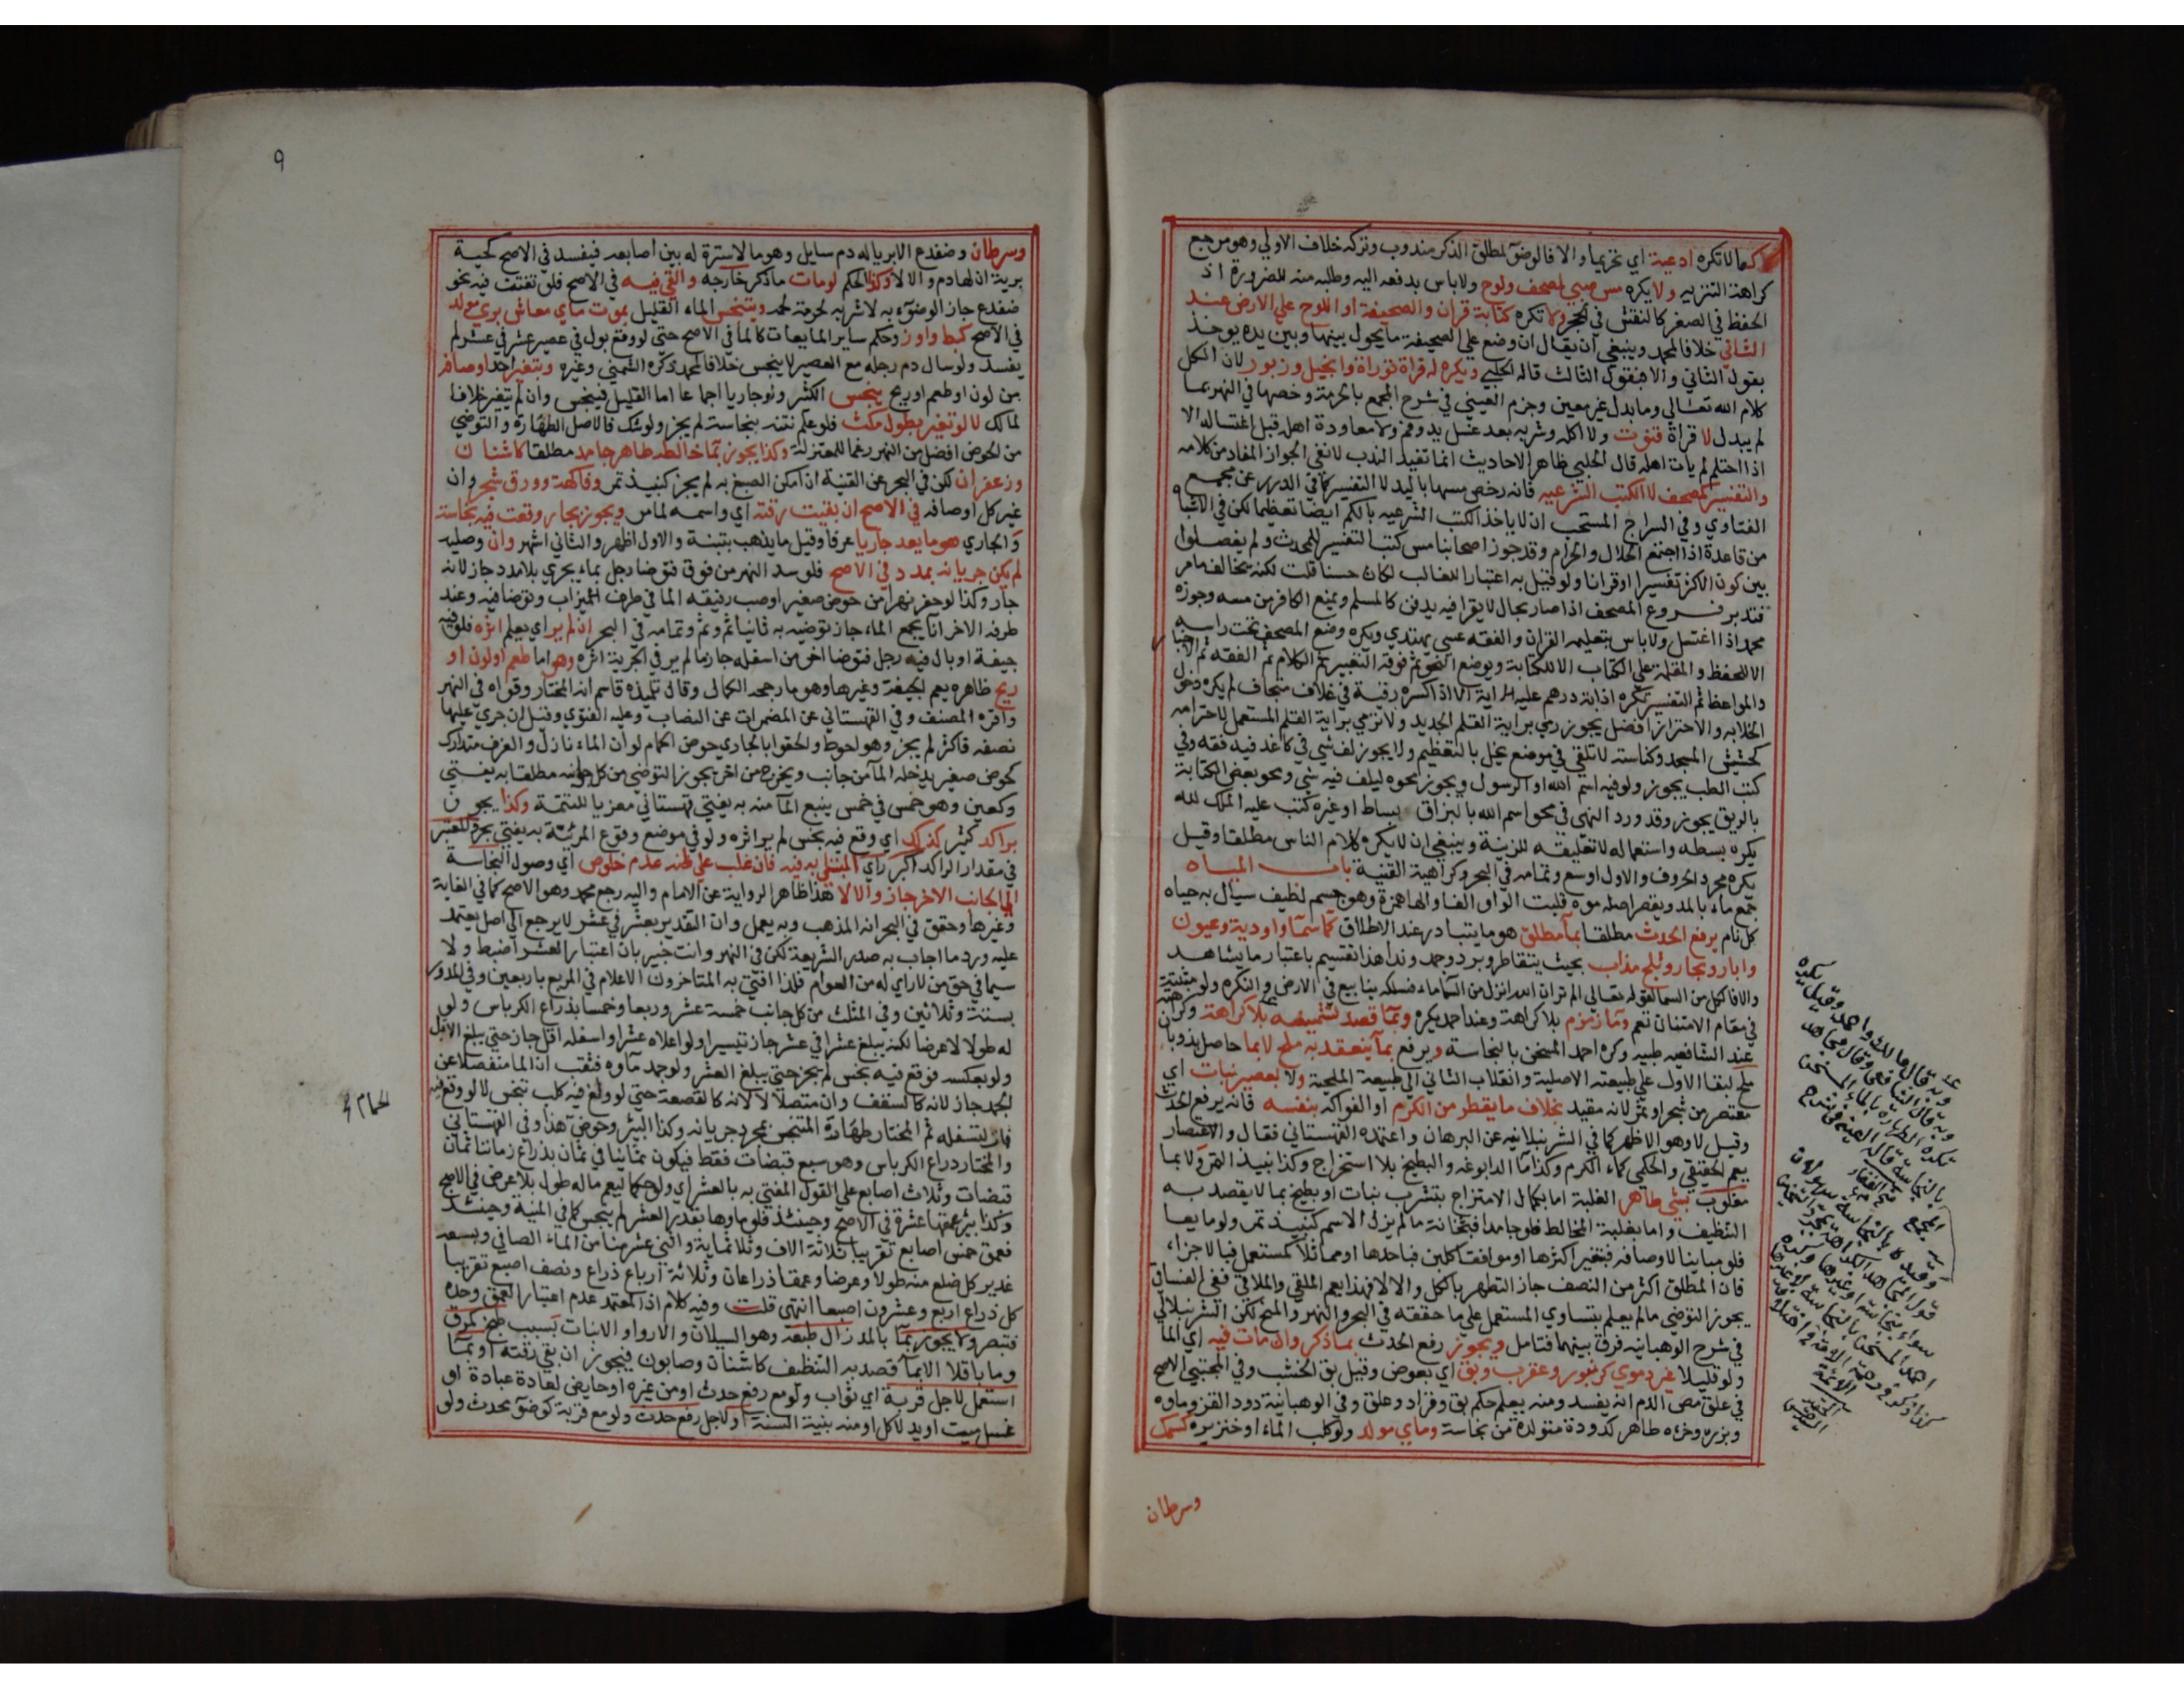 كما لا تكره ادعية اي تحريما والا فالوضؤ لمطلق الذكر مندوب وتركه خلاف الاولي وهو مرجع
كراهة التنزيه ولا يكره مس صبي لمصحف ولوح ولا باس بدفعه اليه وطلبه منه للضرورة اذ
الحفظ في الصغر كالنقش في الحجر ولا تكره كتابة قران والصحيفة او اللوح علي الارض عند
الثاني خلافا لمحمد وينبغي ان يقال ان وضع علي الصحيفة ما يحول بينها وبين يده يوخذ
بقول الثاني والا فبقول الثالث قاله الحلبي ويكره له قراة توراة وانجيل وزبور لان الكل
كلام الله تعالي وما بدل غير معين وجزم العيني في شرح المجمع بالحرمة وخصها في النهر بما
لم يبدل لا قراة قنوت ولا اكله وشربه بعد غسل يد وفم ولا معاودة اهله قبل اغتساله الا
اذا احتلم لم يات اهله قال الحلبي ظاهر الاحاديث انما تفيد الندب لا نفي الجواز المفاد من كلامه
والتفسير كمصحف لا الكتب الشرعيه فانه رخص مسها باليد لا التفسير كما في الدرر عن مجمع
الفتاوي وفي السراج المستحب ان لا ياخذ الكتب الشرعيه بالكم ايضا تعظيما لكن في الاشباه
من قاعدة اذا اجتمع الحلال والحرام وقد جوز اصحابنا مس كتب التفسير للمحدث ولم يفصلوا
بين كون الاكثر تفسيرا او قرانا ولو قيل به اعتبارا للغالب لكان حسنا قلت لكنه يخالف ما مر
فتدبر فروع المصحف اذا صار بحال لا يقرا فيه يدفن كالمسلم ويمنع الكافر من مسه وجوزه
محمد اذا اغتسل ولا باس بتعليمه القران والفقه عسي يهتدي ويكره وضع المصحف تحت راسه
الا للحفظ والمقلمة علي الكتاب الا للكتابة ويوضع النحو ثم فوقه التعبير ثم الكلام ثم الفقه ثم الاخبار
والمواعظ ثم التفسير تكره اذابة درهم عليه اية الا اذا كسره رقية في غلاف متجاف لم يكره دخول
الخلا به والاحتراز افضل يجوز رمي براية القلم الجديد ولا ترمي براية القلم المستعمل لاحترامه
كحشيش المسجد وكناسته لا تلقي في موضع يخل بالتعظيم ولا يجوز لف شي في كاغد فيه فقه وفي
كتب الطب يجوز ولو فيه اسم الله او الرسول ويجوز محوه ليلف فيه شي ومحو بعض الكتابة
بالريق يجوز وقد ورد النهي في محو اسم الله بالبزاق بساط او غيره كتب عليه الملك لله
يكره بسطه واستعماله لا تعليقه للزينة وينبغي ان لا يكره كلام الناس مطلقا وقيل
يكره مجرد الحروف والاول اوسع وتمامه في البحر وكراهية القنية باب المياه
جمع ماء بالمد ويقصر اصله موه قلبت الواو الفا والها همزة وهو جسم لطيف سيال به حياه
كل نام يرفع الحدث مطلقا بماء مطلق هو ما يتبادر عند الاطلاق كماء سماء واودية وعيون
وابار وبحار وثلج مذاب بحيث يتقاطر وبرد وجمد وندا هذا تقسيم باعتبار ما يشاهد
والا فالكل من السما لقوله تعالي الم تر ان الله انزل من السماء ماء فسلكه ينابيع في الارض والنكره ولو مثبتة
في مقام الامتنان تعم وماء زمزم بلا كراهة وعند احمد يكره وبماء قصد تشميسه بلا كراهة وكراهته
عند الشافعيه طبيه وكره احمد المسخن بالنجاسة ويرفع بماء ينعقد به ملح لا بما حاصل بذوبان
ملح لبقا الاول علي طبيعته الاصلية وانقلاب الثاني الي طبيعة الملحية ولا بعصير نبات اي
معتصر من شجر او ثمر لانه مقيد بخلاف ما يقطر من الكرم او الفواكه بنفسه فانه يرفع الحدث
وقيل لا وهو الاظهر كما في الشرنبلانيه عن البرهان واعتمده القهستاني فقال والاعتصار
يعم الحقيقي والحكمي كماء الكرم وكذا ماء الدابوغه والبطيخ بلا استخراج وكذا نبيذ التمر ولا بما
مغلوب بشي طاهر الغلبة اما بكمال الامتزاج بتشرب نبات او بطبخ بما لا يقصد به
التنظيف واما بغلبة المخالط فلو جامدا فبثخانة ما لم يزل الاسم كنبيذ تمر ولو مايعا
فلو مباينا لاوصافه فبتغير اكثرها او موافقا كلبن فباحدها او مماثلا كمستعمل فبالاجزاء
فان المطلق اكثر من النصف جاز التطهر بالكل والا لا فهذا يعم الملقي والملاقي ففي الفساقي
يجوز التوضي ما لم يعلم بتساوي المستعمل علي ما حققه في البحر والنهر والمنح لكن الشرنبلالي
في شرح الوهبانيه فرق بينهما فتامل ويجوز رفع الحدث بما ذكر وان مات فيه اي الما
ولو قليلا غير دموي كزنبور وعقرب وبق اي بعوض وقيل بق الخشب وفي المجتبي الاصح
في علق مص الدم انه يفسد ومنه يعلم حكم بق وقراد وعلق وفي الوهبانية دود القز وماوه
وبزره وخرءه طاهر كدودة متولدة من نجاسة وماي مولد ولو كلب الماء او خنزيره كسمك
وسرطان
وبه قال مالك واحمد وقيل يكره
وبه قال الشافعي وقال مجاهد
تكره الطهارة بالماء المسخن
بالنجاسة قاله العيني في شرح
المجمع
وسرطان وضفدع الا بريا له دم سايل وهو ما لا سترة له بين اصابعه فيفسد في الاصح كحية
برية ان لها دم والا لا وكذا الحكم لو مات ما ذكر خارجه والقي فيه في الاصح فلو تفتت فيه نحو
ضفدع جاز الوضوء به لا شربه لحرمة لحمه وينجس الماء القليل بموت ماي معاش بري مولد
في الاصح كبط واوز وحكم ساير المايعات كالما في الاصح حتي لو وقع بول في عصير عشر في عشر لم
يفسد ولو سال دم رجله مع العصير لا ينجس خلافا لمحمد ذكره الشمني وغيره وبتغير احد اوصافه
من لون او طعم او ريح ينجس الكثير ولو جاريا اجماعا اما القليل فينجس وان لم يتغير خلافا
لمالك لا لو تغير بطول مكث فلو علم نتنه بنجاسة لم يجز ولو شك فالاصل الطهارة والتوضي
من الحوض افضل من النهر رغما للمعتزلة وكذا يجوز بماء خالطه طاهر جامد مطلقا كاشنان
وزعفران لكن في البحر عن القنية ان امكن الصبغ به لم يجز كنبيذ تمر وفاكهة وورق شجر وان
غير كل اوصافه في الاصح ان بقيت رقته اي واسمه لما مر ويجوز بجار وقعت فيه نجاسة
والجاري هو ما يعد جاريا عرفا وقيل ما يذهب بتبنة والاول اظهر والثاني اشهر وان وصليه
لم يكن جريانه بمدد في الاصح فلو سد النهر من فوق فتوضا رجل بماء يجري بلا مدد جاز لانه
جار وكذا لو حفر نهرا من حوض صغير او صب رفيقه الما في طرف الميزاب وتوضا فيه وعند
طرفه الاخر انا يجمع الماء جاز توضيه به ثانيا ثم وثم وتمامه في البحر ان لم ير اي يعلم اثره فلو فيه
جيفة او بال فيه رجل فتوضا اخر من اسفله جاز ما لم ير في الجرية اثره وهو اما طعم او لون او
ريح ظاهره يعم الجيفة وغيرها وهو ما رجحه الكمال وقال تلميذه قاسم انه المختار وقواه في النهر
واقره المصنف وفي القهستاني عن المضمرات عن النصاب وعليه الفتوي وقيل ان جري عليها
نصفه فاكثر لم يجز وهو احوط والحقوا بالجاري حوض الحمام لو ان الماء نازل والغرف متدارك
كحوض صغير يدخله الماء من جانب ويخرج من اخر يجوز التوضي من كل جوانبه مطلقا به يفتي
وكعين وهو خمس في خمس ينبع الماء منه به يفتي قهستاني معزيا للتتمة وكذا يجوز
براكد كثير كذلك اي وقع فيه نجس لم ير اثره ولو في موضع وقوع المرئية به يفتي بحر والمعتبر
في مقدار الراكد اكبر راي المبتلي به فيه فان غلب علي ظنه عدم خلوص اي وصول النجاسة
الي الجانب الاخر جاز والا لا هذا ظاهر الرواية عن الامام واليه رجع محمد وهو الاصح كما في الغاية
وغيرها وحقق في البحر انه المذهب وبه يعمل وان التقدير بعشر في عشر لا يرجع الي اصل يعتمد
عليه ورد ما اجاب به صدر الشريعة لكن في النهر وانت خبير بان اعتبار العشر اضبط ولا
سيما في حق من لا راي له من العوام فلذا افتي به المتاخرون الاعلام في المربع باربعين وفي المدور
بستة وثلاثين وفي المثلث من كل جانب خمسة عشر وربعا وخمسا بذراع الكرباس ولو
له طول لا عرض لكنه يبلغ عشرا في عشر جاز تيسيرا ولو اعلاه عشرا واسفله اقل جاز حتي يبلغ الاقل
ولو بعكسه فوقع فيه نجس لم يجز حتي يبلغ العشر ولو جمد ماوه فثقب ان الما منفصلا عن
الجمد جاز لانه كالسقف وان متصلا لا لانه كالقصعة حتي لو ولغ فيه كلب تنجس لا لو وقع فيه
فمات لتسفله ثم المختار طهارة المتنجس بمجرد جريانه وكذا البئر وحوض هذا وفي القهستاني
والمختار ذراع الكرباس وهو سبع قبضات فقط فيكون ثمانيا في ثمان بذراع زماننا ثمان
قبضات وثلاث اصابع علي القول المفتي به بالعشر اي ولو حكما ليعم ما له طول بلا عرض في الاصح
وكذا بئر عمقها عشرة في الاصح وحينئذ فلو ماوها بقدر العشر لم ينجس كما في المنية وحينئذ
فعمق خمس اصابع تقريبا ثلاثة الاف وثلاثماية واثني عشر منا من الماء الصافي ويسعه
غدير كل ضلع منه طولا وعرضا وعمقا ذراعان وثلاثة ارباع ذراع ونصف اصبع تقريبا
كل ذراع اربع وعشرون اصبعا انتهي قلت وفيه كلام اذ المعتمد عدم اعتبار العمق وحده
فتبصر ولا يجوز بماء بالمد زال طبعه وهو السيلان والارواء والانبات بسبب طبخ كمرق
وماء باقلا الا بماء قصد به التنظيف كاشنان وصابون فيجوز ان بقي رقته او بماء
استعمل لاجل قربة اي ثواب ولو مع رفع حدث او من مميز او حايض لعادة عبادة او
غسل ميت او يد لاكل او منه بنية السنة او لاجل رفع حدث ولو مع قربة كوضوء محدث ولو
الحمام
٩